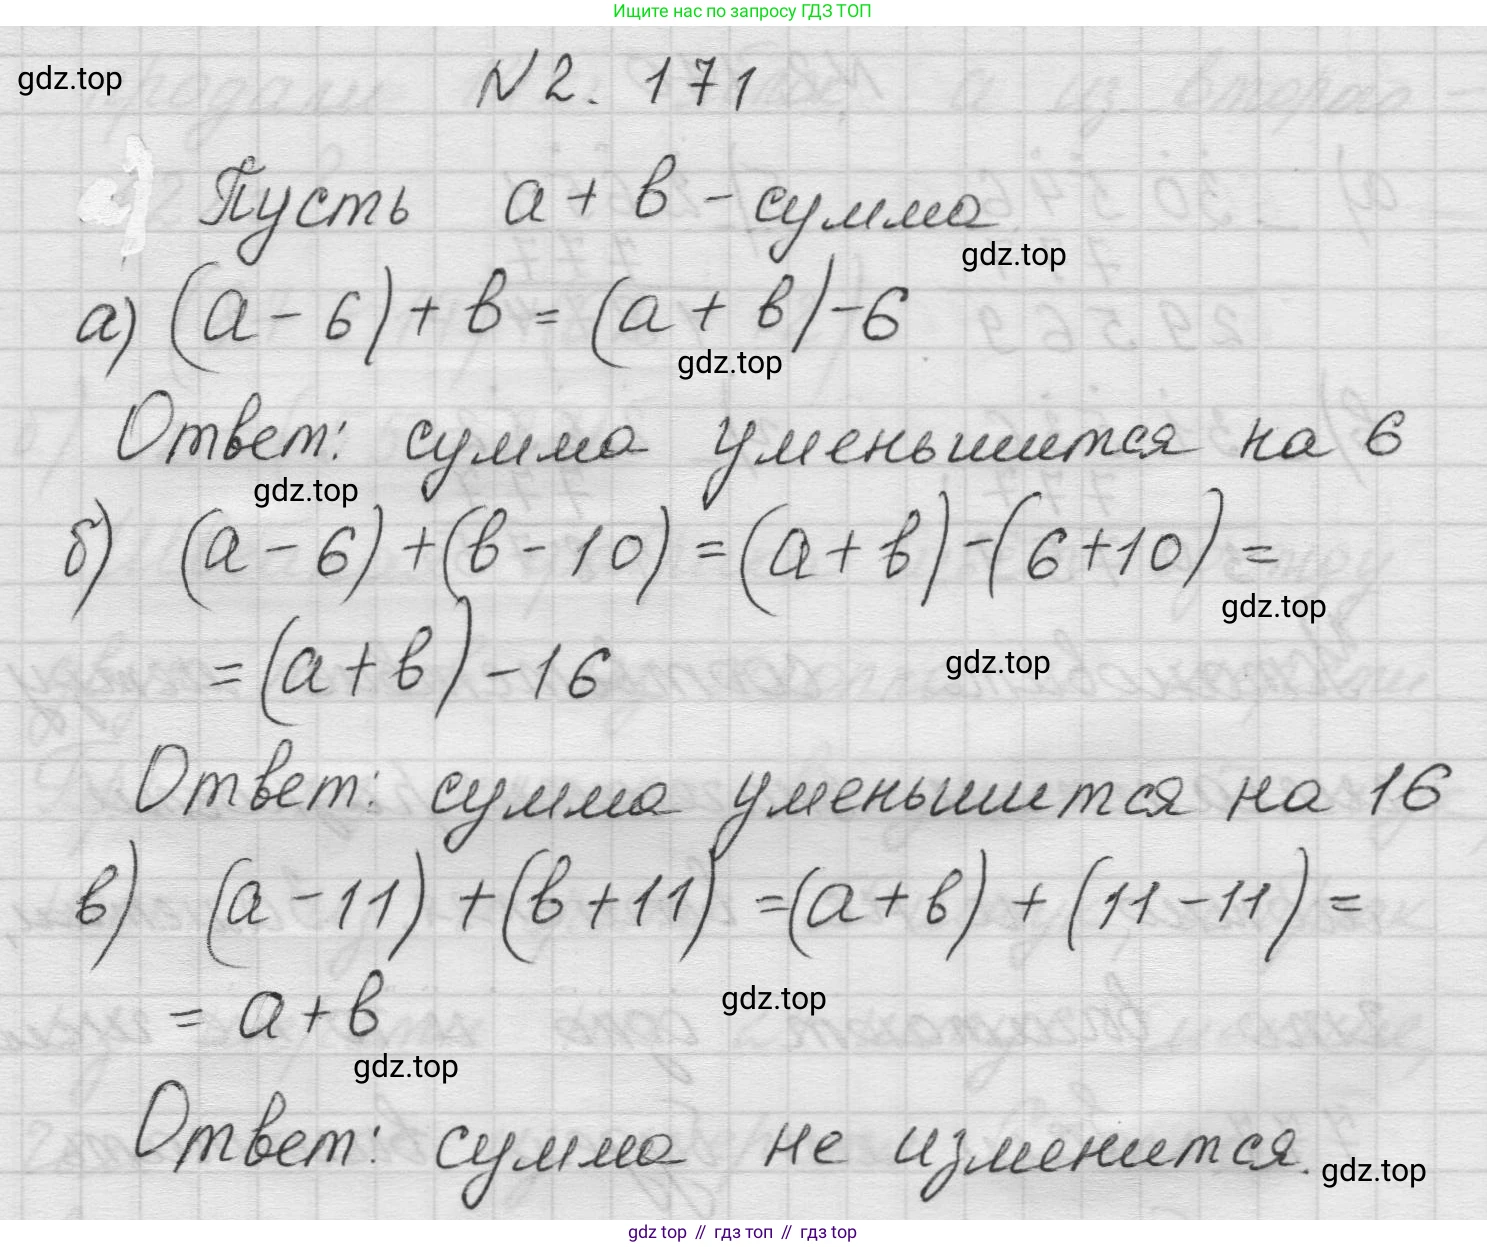 Ищите нас по запросу ГДЗ ТОП
N 2. 171
gdz.top
Пусть а + в - сумма
gdz.top
а) (а - 6) + в = (а + в) - 6
gdz.top
Ответ: сумма уменьшится на 6
gdz.top
б) (а - 6) + (в - 10) = (а + в) - (6 + 10) =
gdz.top
= (а + в) - 16
gdz.top
Ответ: сумма уменьшится на 16
в) (а - 11) + (в + 11) = (а + в) + (11 - 11) =
gdz.top
= а + в
gdz.top
Ответ: сумма не изменится.
gdz.top
gdz top // гдз топ // gdz top